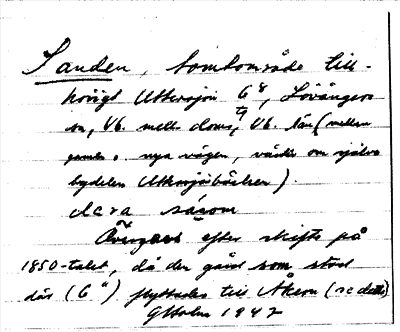 Sanden, tomtområde till-
hörigt Utersjön 6⁸, Lövångers
sn, Vb. mell. doms, Vb. län (mellan
gamla o. nya vägen, väster om själva
bydelen
dera såsom
efter skifte på
1850-talet, då den gård som stod
där (6⁴) flyttades till Åkern (se detta)
GHolm 1942